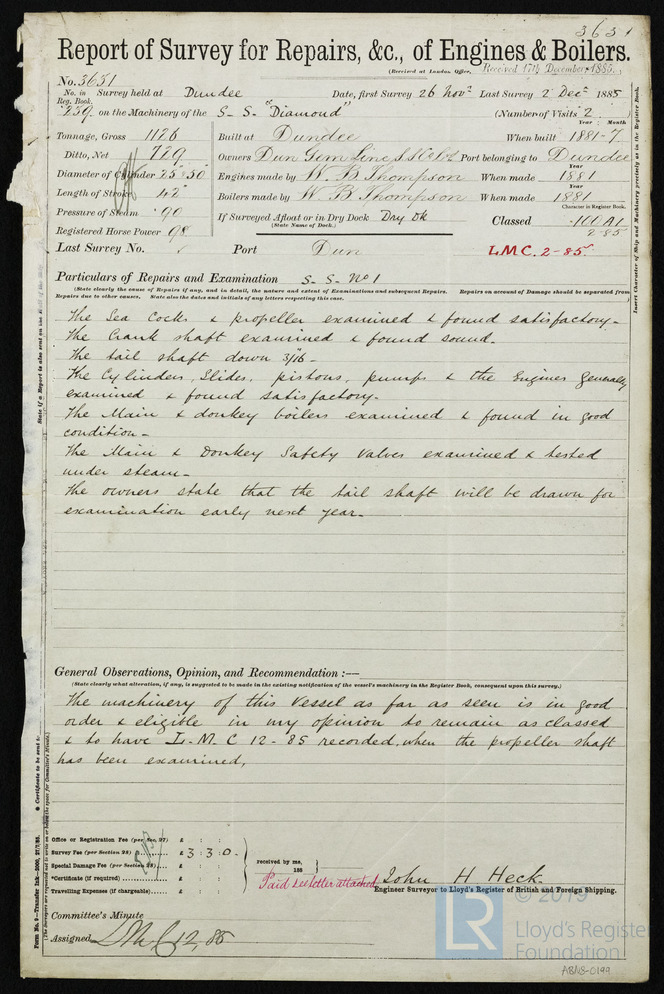 3651
Report of Survey for Repairs, &c., of Engines & Boilers.
(Received at London Office, Received 17th December 1885.)
No. 3651
No. in Reg. Book. Survey held at Dundee Date, first Survey 26 Novr Last Survey 2 Decr 1885
239 on the Machinery of the S. S. "Diamond" (Number of Visits 2
Year Month
Tonnage, Gross 1126 Built at Dundee When built 1881-7
Ditto, Net 729 Owners Dun Gem Line Port belonging to Dundee
Year
Diameter of Cylinder 25 & 50 Engines made by W. B Thompson When made 1881
Year
Length of Stroke 42 Boilers made by W B Thompson When made 1881
Character in Register Book.
Pressure of Steam 90 If Surveyed Afloat or in Dry Dock Dry Dk Classed 100 A1
(State Name of Dock.) 2-85
Registered Horse Power 98
Last Survey No. Port Dun L.M.C. 2-85
Particulars of Repairs and Examination S. S. No 1
(State clearly the cause of Repairs if any, and in detail, the nature and extent of Examinations and subsequent Repairs. Repairs on account of Damage should be separated from
Repairs due to other causes. State also the dates and initials of any letters respecting this case.
The Sea Cocks & propeller examined & found satisfactory-
The Crank shaft examined & found sound-
The tail shaft down 3/16-
The Cylinders, Slides, pistons, pumps & the Engines generally
examined & found satisfactory-
The Main & donkey boilers examined & found in good
condition-
The Main & Donkey Safety Valves examined & tested
under steam-
The owners state that the tail shaft will be drawn for
examination early next year-
General Observations, Opinion, and Recommendation :—
(State clearly what alteration, if any, is suggested to be made in the existing notification of the vessel's machinery in the Register Book, consequent upon this survey.)
The machinery of this Vessel as far as seen is in good
order & eligible in my opinion to remain as classed
& to have L. M. C 12-85 recorded, when the propeller shaft
has been examined,
Office or Registration Fee (per Sec. 27) £ : :
Survey Fee (per Section 28) £ 3 : 3 : 0
Special Damage Fee (per Section 28) £ : :
*Certificate (if required) £ : :
Travelling Expenses (if chargeable) £ : :
received by me,
188
Paid see letter attached
John H Heck.
Engineer Surveyor to Lloyd's Register of British and Foreign Shipping.
Committee's Minute
Assigned LMC 12,85
Insert Character of Ship and Machinery precisely as in the Register Book.
State if a Report is also sent on the Hull of the Ship
* Certificate to be sent to
(The Surveyors are requested not to write on or below the space for Committee's Minute.)
Form No. 9—Transfer Ink—5000, 21/7/85.
© 2019
LR
Lloyd's Register
Foundation
AB18-0199